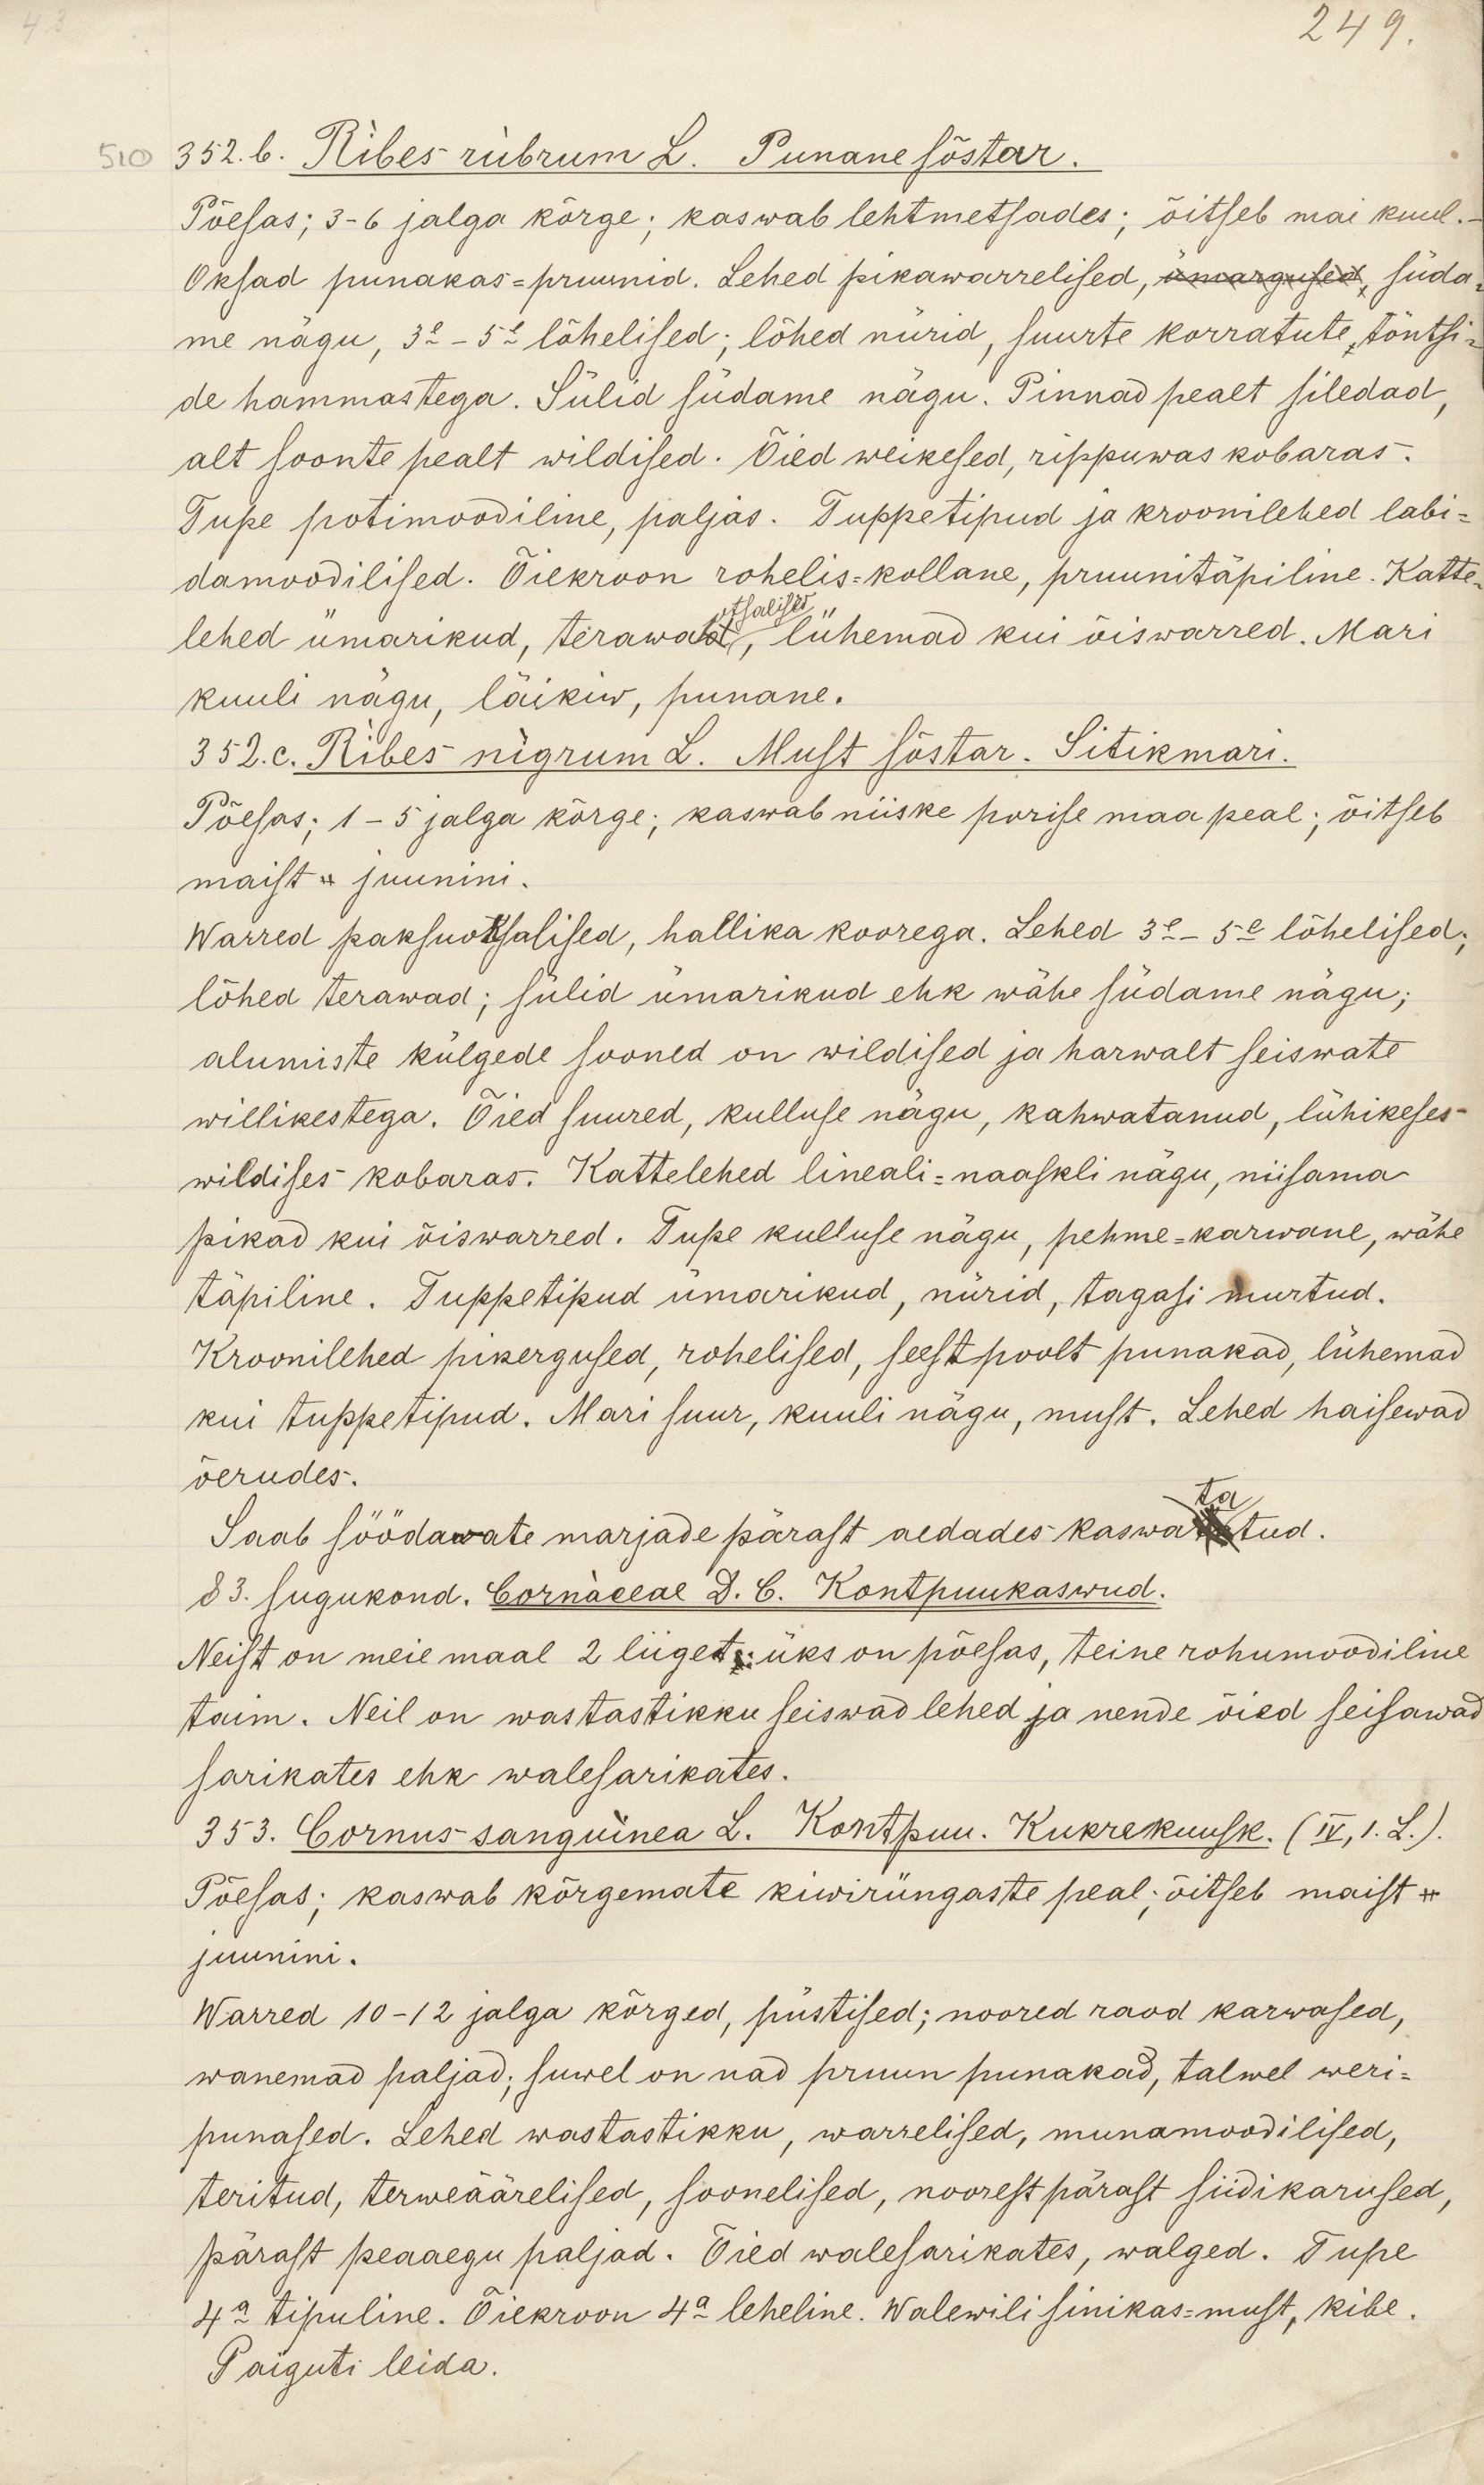 249.
510 352.b. Ribes rùbrum L. Punane sõstar.
Põesas; 3-6 jalga kõrge; kaswab lehtmetsades; õitseb mai kuul.-
Oksad punakas=pruunid. Lehed pikawarrelised, ümargused, süda=
me nägu, 3e - 5e lõhelised; lõhed nürid, suurte korratute, töntsi=
de hammastega. Sülid südame nägu. Pinnad pealt siledad,
alt soonte pealt wildised. Õied weikesed, rippuwas kobaras.
Tupe potimoodiline, paljas. Tuppetipud ja kroonilehed labi=
damoodilised. Õiekroon rohelis=kollane, pruunitäpiline. Katte=
otsalised
lehed ümarikud, terawad, lühemad kui õiswarred. Mari
kuuli nägu, läikiw, punane.
352.c. Ribes nìgrum L. Must sõstar. Sitikmari.
Põesas; 1-5 jalga kõrge; kaswab niiske porise maa peal; õitseb
maist juunini.
Warred paksuoksalised, hallika koorega. Lehed 3e - 5e lõhelised;
lõhed terawad; sülid ümarikud ehk wähe südame nägu;
alumiste külgede sooned on wildised ja harwalt seiswate
willikestega. Õied suured, kulluse nägu, kahwatanud, lühikeses
wildises kobaras. Kattelehed lineali=naaskli nägu, niisama
pikad kui õiswarred. Tupe kulluse nägu, pehme=karwane, wähe
täpiline. Tuppetipud ümarikud, nürid, tagasi murtud.
Kroonilehed pikergused, rohelised, seestpoolt punakad, lühemad
kui tuppetipud. Mari suur, kuuli nägu, must. Lehed haisewad
õerudes.
Saab söödawate marjade pärast aedades kaswatatud.
83. sugukond. Cornàceae D. C. Kontpuukaswud.
Neist on meie maal 2 liiget: üks on põesas, teine rohumoodiline
taim. Neil on wastastikku seiswad lehed ja nende õied seisawad
sarikates ehk walesarikates.
353. Cornus sanguìnea L. Kontpuu. Kukrekuusk. (IV, 1. L.).
Põesas; kaswab kõrgemate kiwirüngaste peal; õitseb maist
juunini.
Warred 10-12 jalga kõrged, püstised; noored raod karwased,
wanemad paljad; suwel on nad pruun punakad, talwel weri=
punased. Lehed wastastikku, warrelised, munamoodilised,
teritud, terweäärelised, soonelised, noorest pärast siidikarused,
pärast peaaegu paljad. Õied walesarikates, walged. Tupe
4a tipuline. Õiekroon 4a leheline. Walewili sinikas=must, kibe.
Paiguti leida.